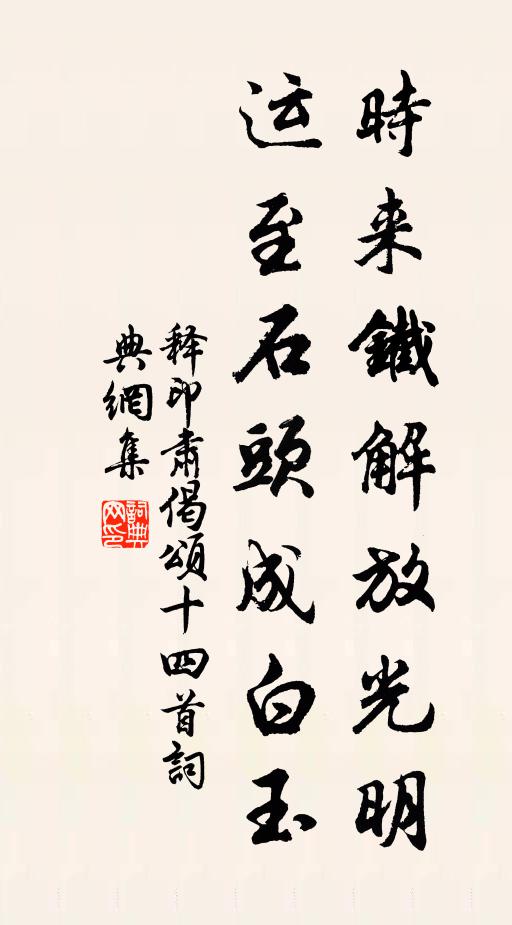 時来鐵解放光明
运至石頭成白玉
释印肃偈頌十四首詞
典網集
詞典网印